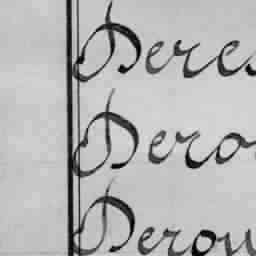 Deres
Dero
Derow